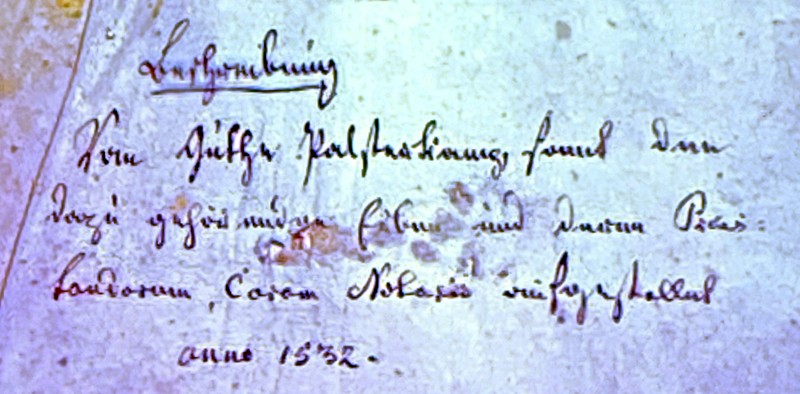 Beschreibung
Vom Guthe Palsterkamp, sambt den
dazu gehörenden Erben und deren Præs-
tandorum, Coram Notario aufgestellet
anno 1532.